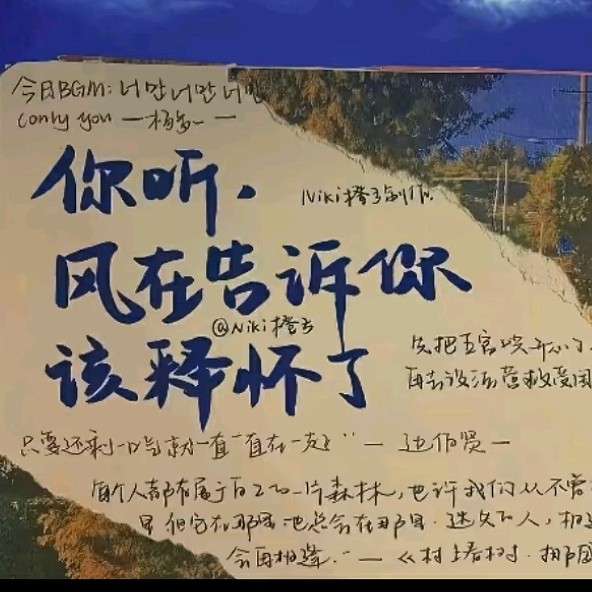 今日BGM:너만너만너만
(only you — 杨
你听.
Niki橙子创作.
风在告诉你
@Niki橙子
该释怀了
先把五官哭开心了.
再去设法营救受困
只要还剩一口气就一直一直在一起 — 边伯贤 —
每个人都有属于自己的一片森林,也许我们从不曾
里 但它在那里.它总会在那里.迷失的人,相逢
会再相逢. — 《村上春树·挪威